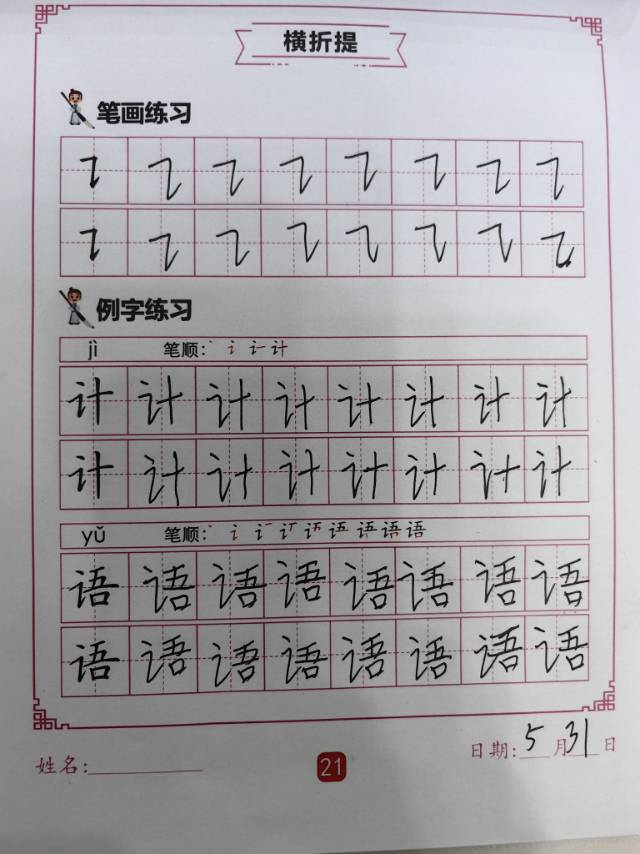 横折提
笔画练习
㇊ ㇊ ㇊ ㇊ ㇊ ㇊ ㇊ ㇊
㇊ ㇊ ㇊ ㇊ ㇊ ㇊ ㇊ ㇊
例字练习
jì 笔顺: 丶 讠 计
计 计 计 计 计 计 计 计
计 计 计 计 计 计 计 计
yǔ 笔顺: 丶 讠 语
语 语 语 语 语 语 语 语
语 语 语 语 语 语 语 语
姓名: 21 日期: 5 月 31 日